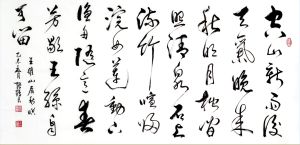 空山新雨後
天氣晚來
秋明月松間
照清泉石上
流竹喧歸
浣女蓮動下
漁舟隨意春
芳歇王孫自
可留
王維山居秋暝
乙未